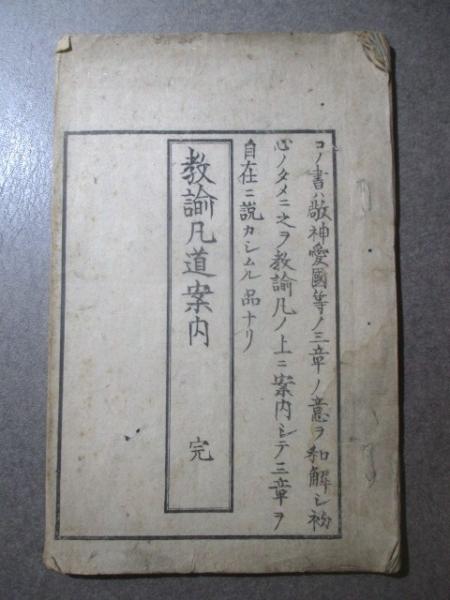 コノ書ハ敬神愛國等ノ三章ノ意ヲ和解シ初
心ノタメニ之ヲ教諭凡ノ上ニ案内シテ三章ヲ
自在ニ説カシムル品ナリ
教諭凡道案内 完